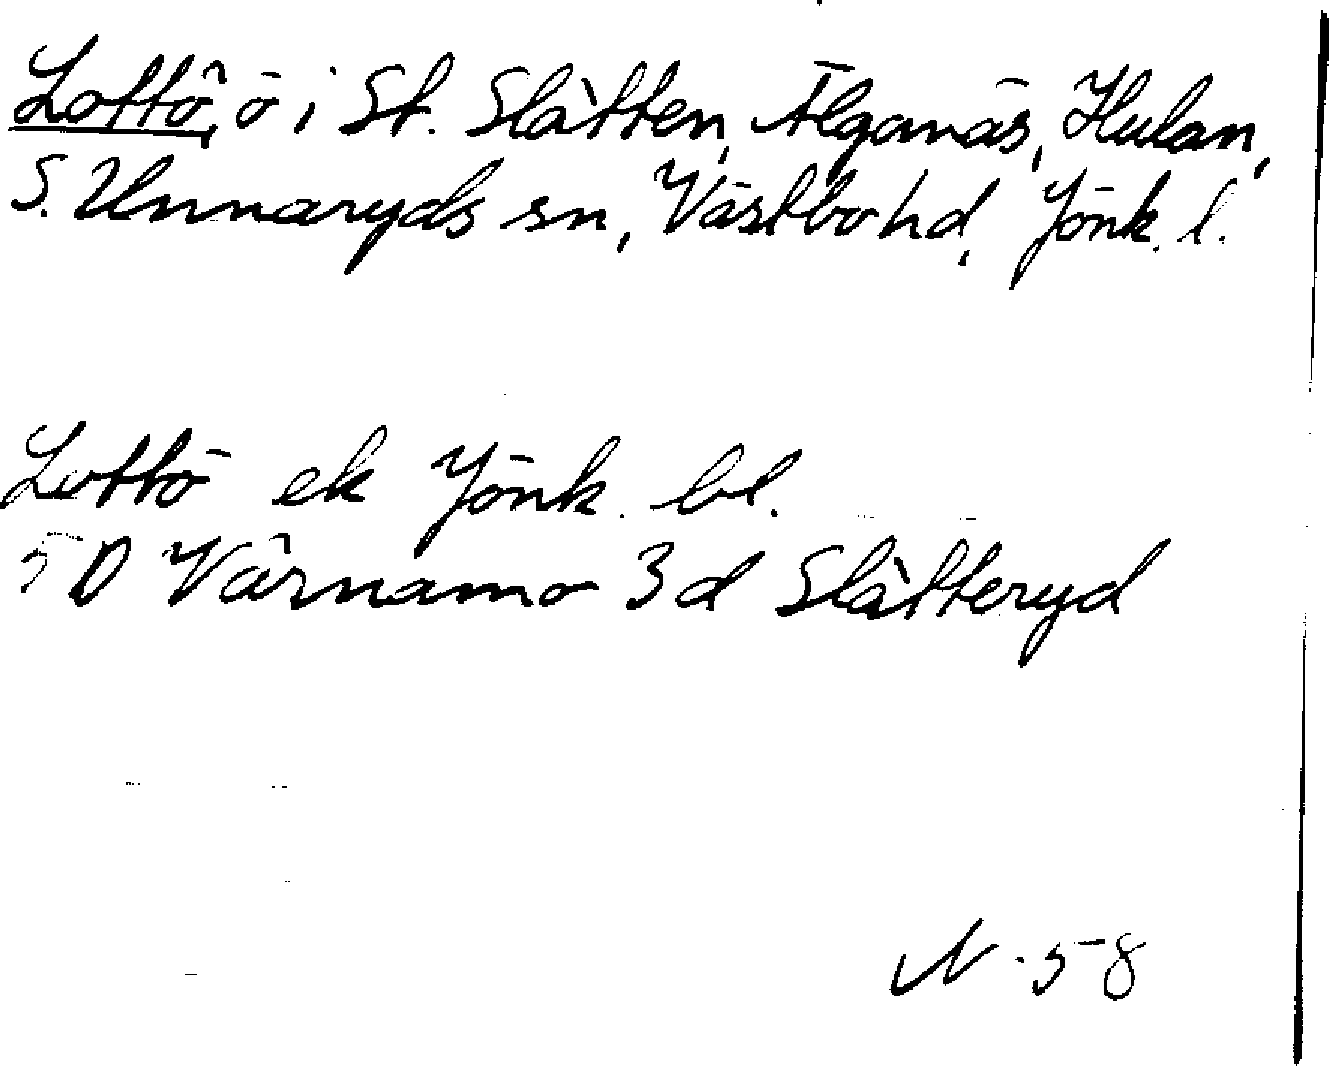 Lottö, ö i St. Slätten, Älganäs, Hulan,
S. Unnaryds sn, Västbo hd, Jönk. l.
Lottö ek Jönk. bl.
5D Värnamo 3d Slätteryd
N. 58